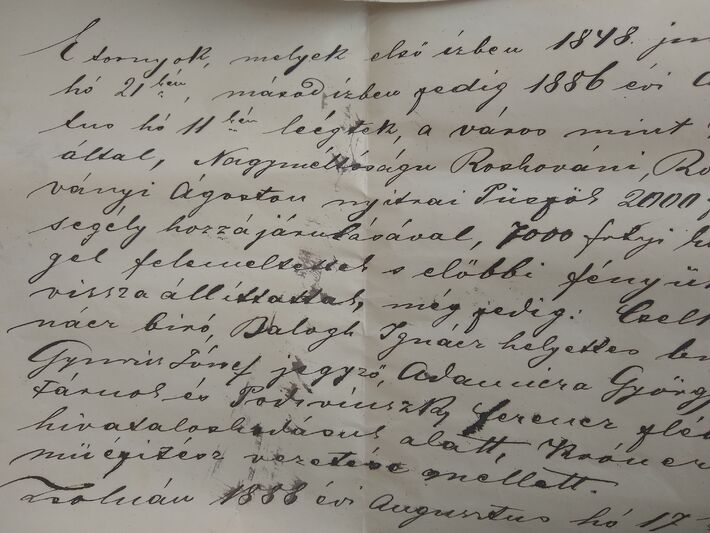 E tornyok, melyek első ízben 1848. jun
hó 21 kén, másod ízben pedig 1886 évi
tus hó 11 kén leégtek, a város mint
által, Nagyméltóságu Roskoványi,
ványi Ágoston nyitrai Püspök 2000
segély hozzájárulásával, 7000 frtnyi
gel felemeltettek s előbbi
vissza állíttattak, még pedig:
nácz biró, Balogh Ignácz helyettes
József jegyző, György
Tárnok és Ferencz
hivataloskodásuk alatt,
müépitész vezetése mellett.
Zsolnán 1888 évi Augusztus hó 17